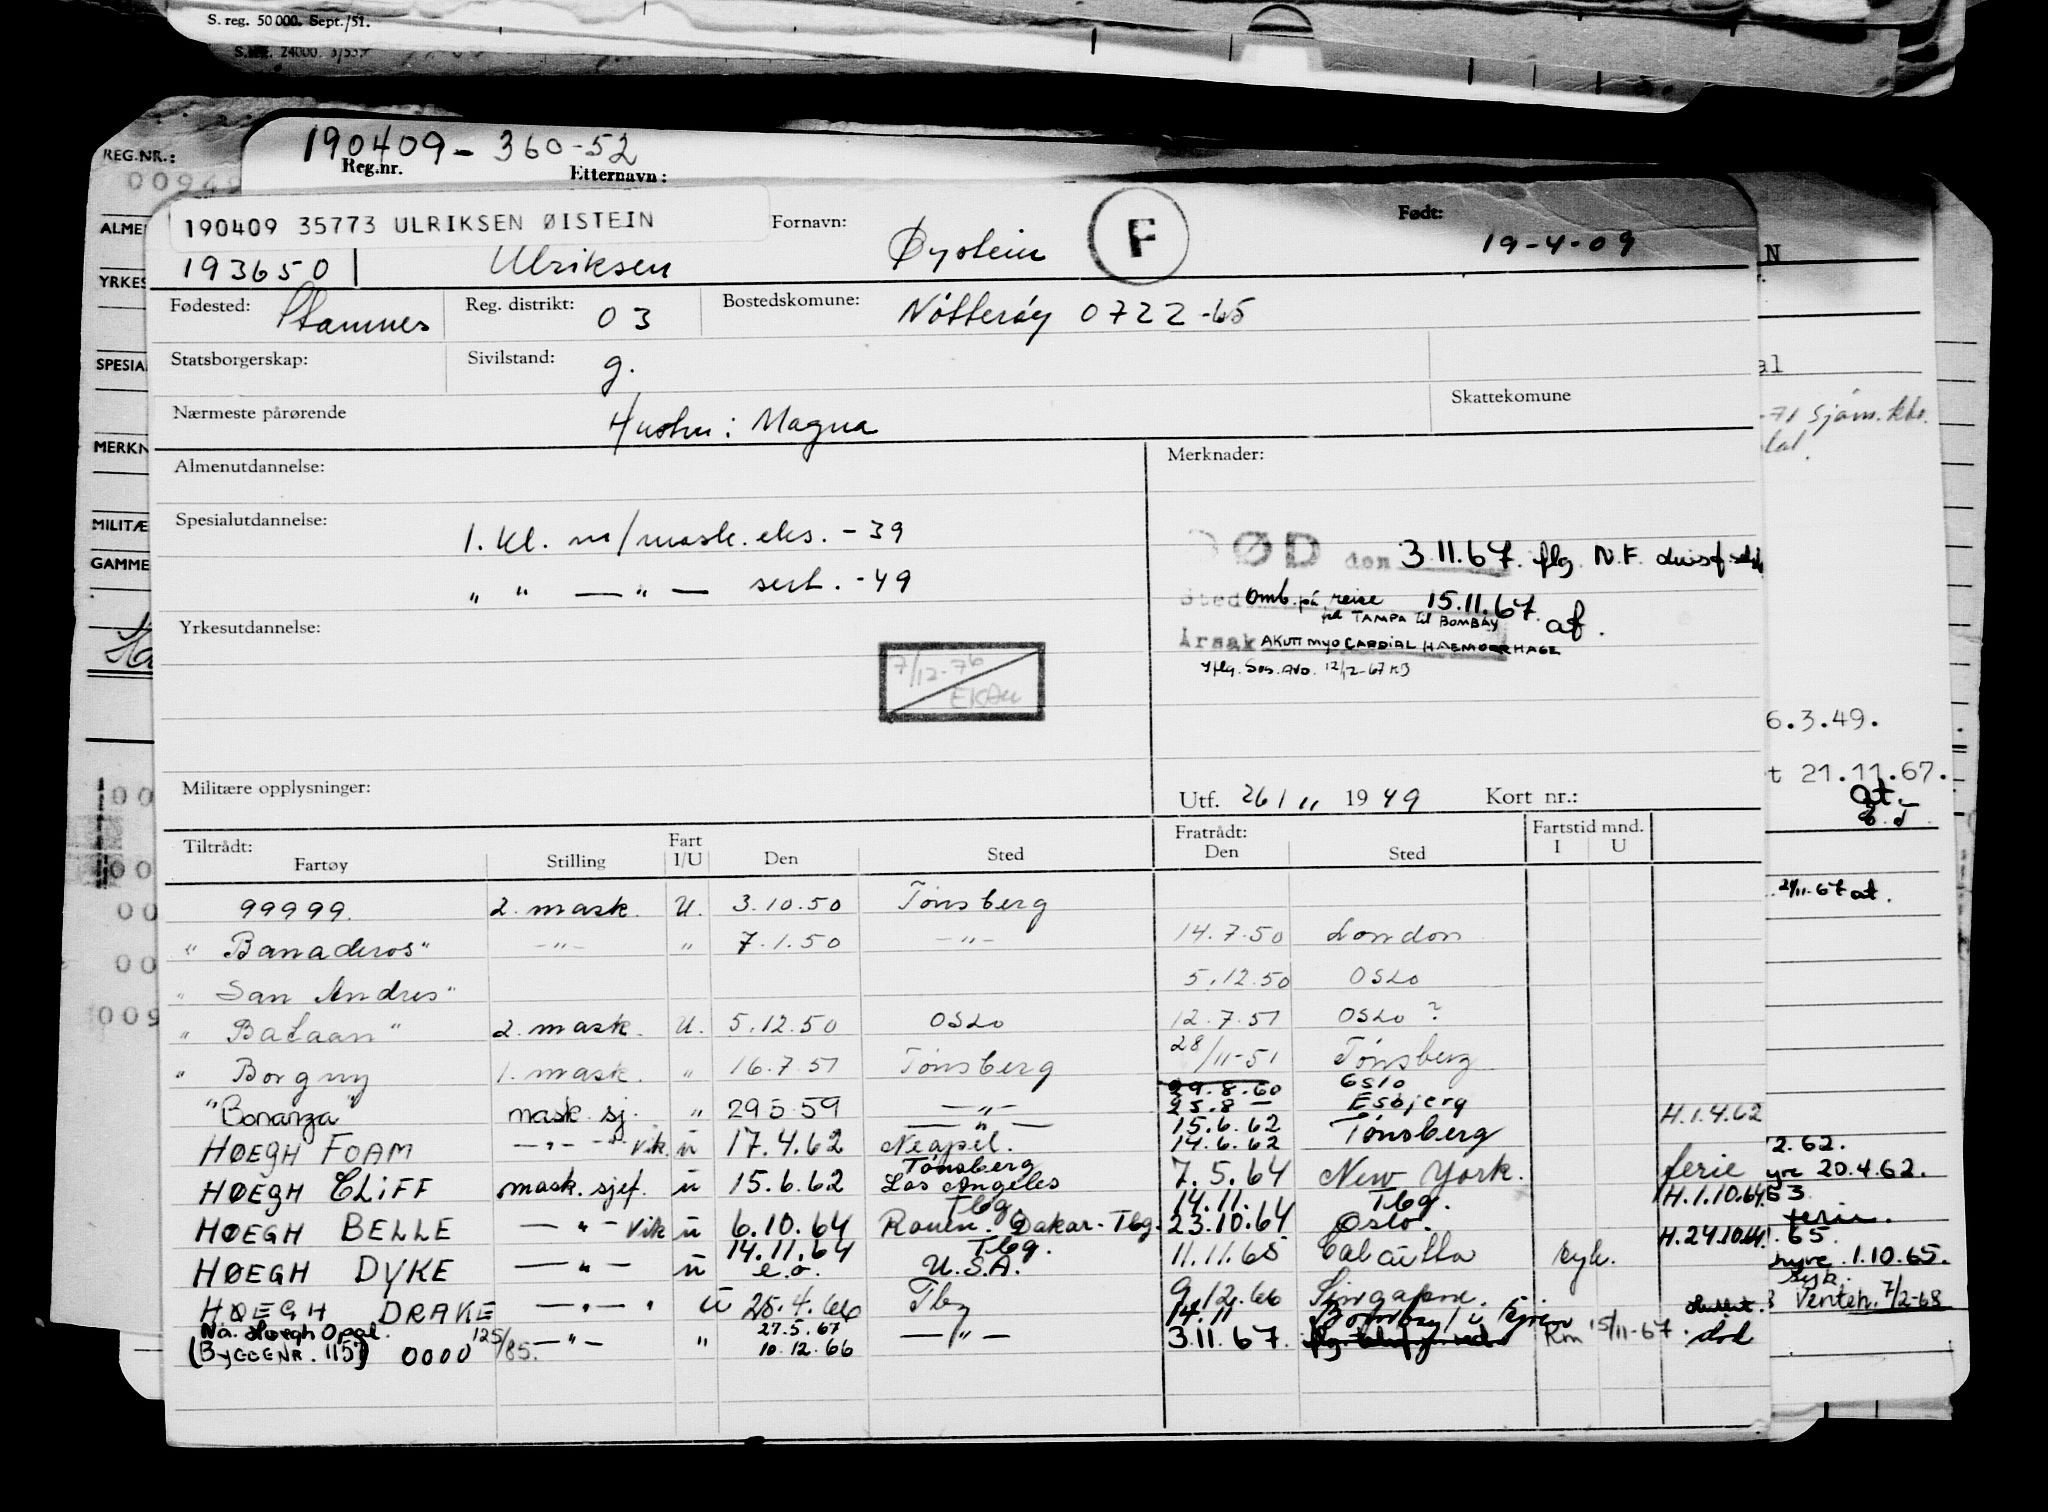 S. reg. 50 000. Sept./51.
REG.NR.:
190409 - 360-52
Reg.nr. Etternavn:
190409 35773 ULRIKSEN ØISTEIN
Fornavn: Øystein
F
Født: 19-4-09
193650 Ulriksen
Fødested: Stamnes
Reg. distrikt: 03
Bostedskomune: Nötteröy 0722-65
Statsborgerskap:
Sivilstand: g.
Skattekomune
Nærmeste pårørende Hustru: Magna
Almenutdannelse:
Merknader:
Spesialutdannelse: 1. kl. m/mask. eks. - 39
" " — " — sert. - 49
DØD den 3.11.67. flg. N.F.
Sted Omb. på reise 15.11.67. af.
på TAMPA til BOMBAY
Årsak AKUTT MYOCARDIAL HAEMORRHAGE
12/12-67 KB
Yrkesutdannelse:
7/12-76
EKAU
Militære opplysninger:
Utf. 26/11 1949 Kort nr.:
Tiltrådt: Fart Fratrådt: Fartstid mnd.
Fartøy Stilling I/U Den Sted Den Sted I U
99999. 2. mask. U. 3.10.50 Tønsberg
" Banaderos" —"— " 7.1.50 —"— 14.7.50 London
" San Andres" 5.12.50 OSLO
" Bataan" 2. mask. U. 5.12.50 OSLO 12.7.51 OSLO ?
" Borgny 1. mask. " 16.7.51 Tønsberg 28/11-51 Tønsberg
29.8.60 Oslo
"Bonanza" mask. sj. " 29.5.59 —"— 25.8 — Esbjerg
—"— 15.6.62 H.1.4.62
HØEGH FOAM —"— Vik. u 17.4.62 Neapel. 14.6.62 Tønsberg
Tønsberg
HØEGH CLIFF mask. sjef. u 15.6.62 Los Angeles 7.5.64 New York. ferie
Tbg. 14.11. Tbg. H.1.10.64
HØEGH BELLE —"— Vik u 6.10.64 Rouen. Dakar-Tbg. 23.10.64 Oslo.
14.11.64 Tbg. H.24.10.64
HØEGH DYKE —"— u e.o. U.S.A. 11.11.65 Calcutta syk.
HØEGH DRAKE —"— U 25.4.66 Tbg 9.12.66 Singapore.
Na. Høegh Opal. 27.5.67 14.11
(BYGGENR. 115) 0000 125/85. —"— " 10.12.66 —"— 3.11.67. 15/11-67. død
6.3.49.
21.11.67.
21/11-67 at.
2.62.
20.4.62.
ferie.
65.
1.10.65.
syk.
Venteh. 7/2-68